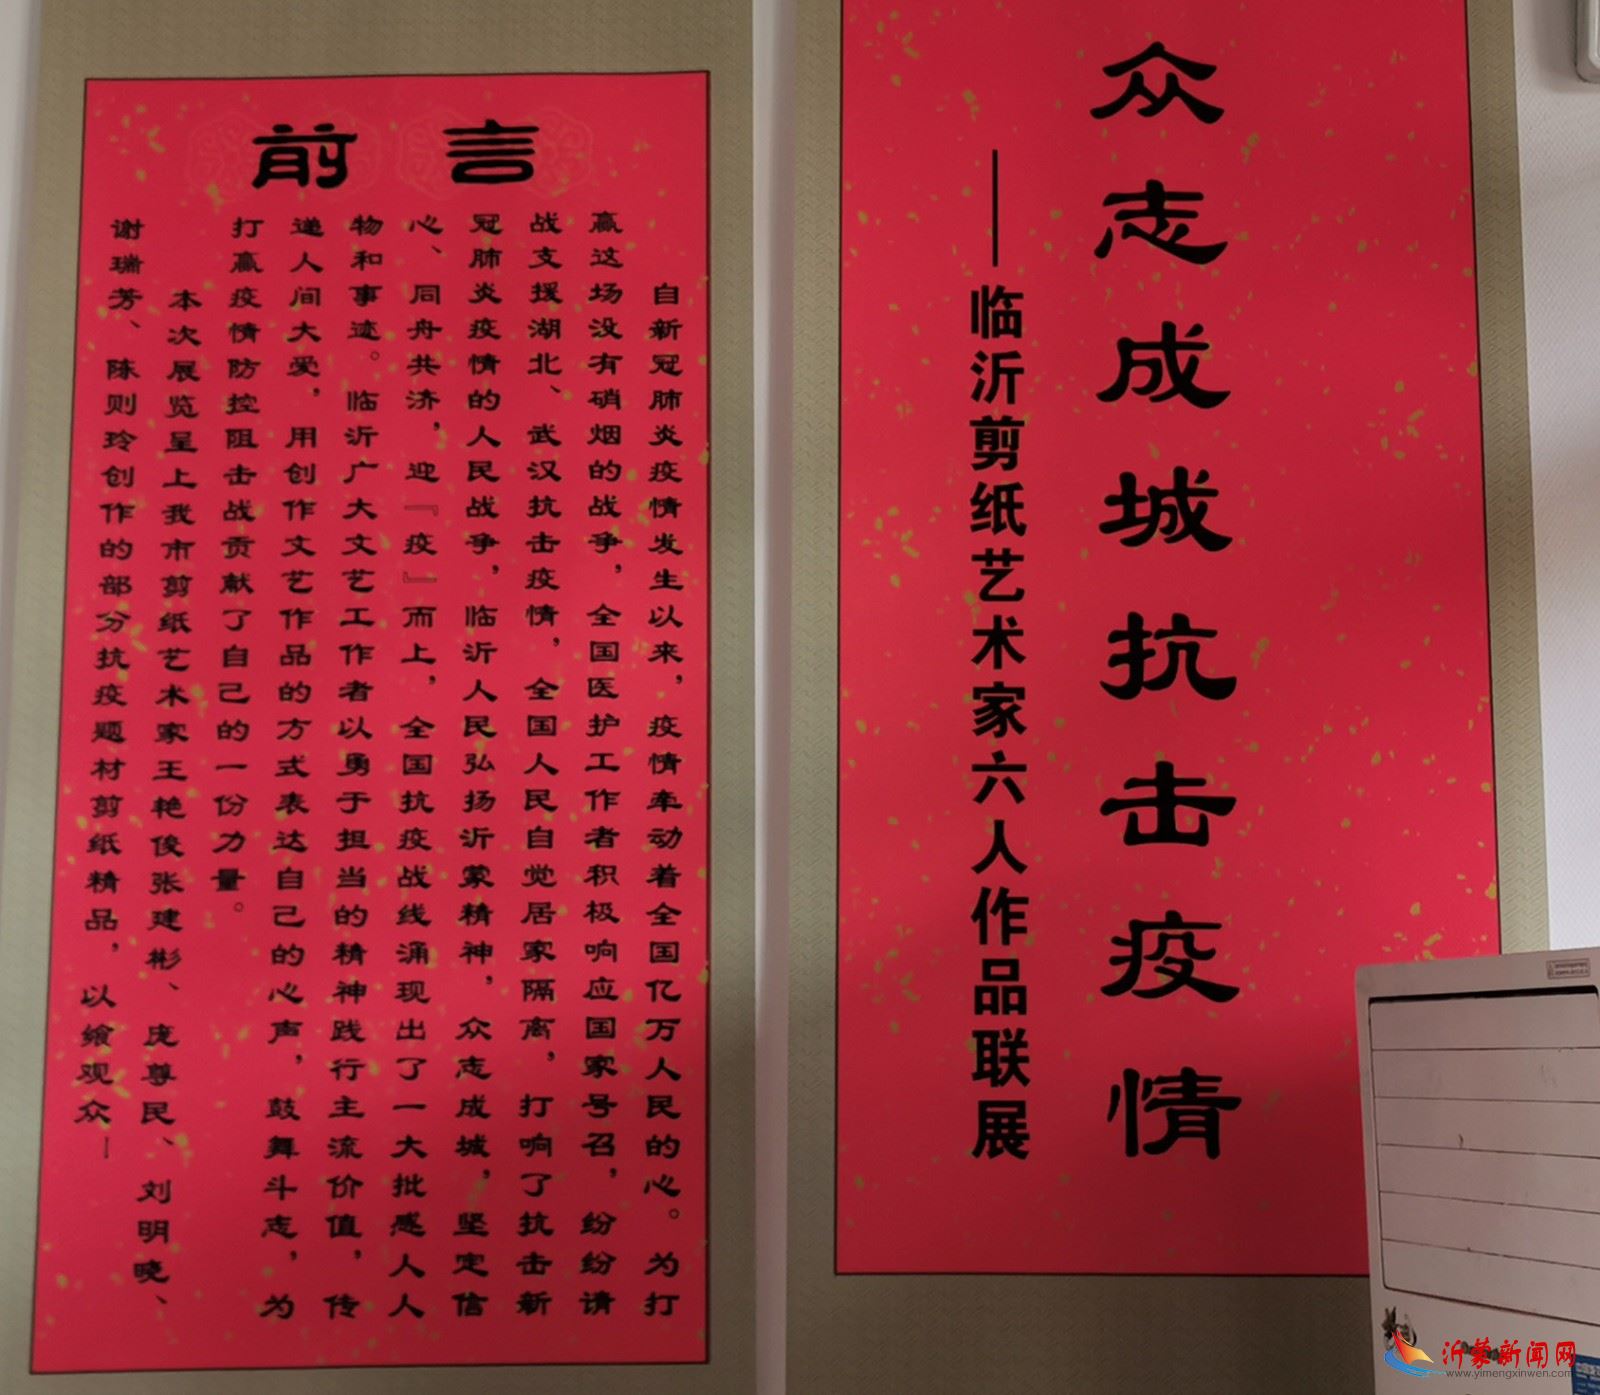 众志成城抗击疫情
——临沂剪纸艺术家六人作品联展
前言
自新冠肺炎疫情发生以来，疫情牵动着全国亿万人民的心。为打
赢这场没有硝烟的战争，全国医护工作者积极响应国家号召，纷纷请
战支援湖北、武汉抗击疫情，全国人民自觉居家隔离，打响了抗击新
冠肺炎疫情的人民战争，临沂人民弘扬沂蒙精神，众志成城，坚定信
心、同舟共济，迎『疫』而上，全国抗疫战线涌现出了一大批感人人
物和事迹。临沂广大文艺工作者以勇于担当的精神践行主流价值，传
递人间大爱，用创作文艺作品的方式表达自己的心声，鼓舞斗志，为
打赢疫情防控阻击战贡献了自己的一份力量。
本次展览呈上我市剪纸艺术家王艳俊张建彬、庞尊民、刘明晓、
谢瑞芳、陈则玲创作的部分抗疫题材剪纸精品，以飨观众—
沂蒙新闻网
www.yimengxinwen.com